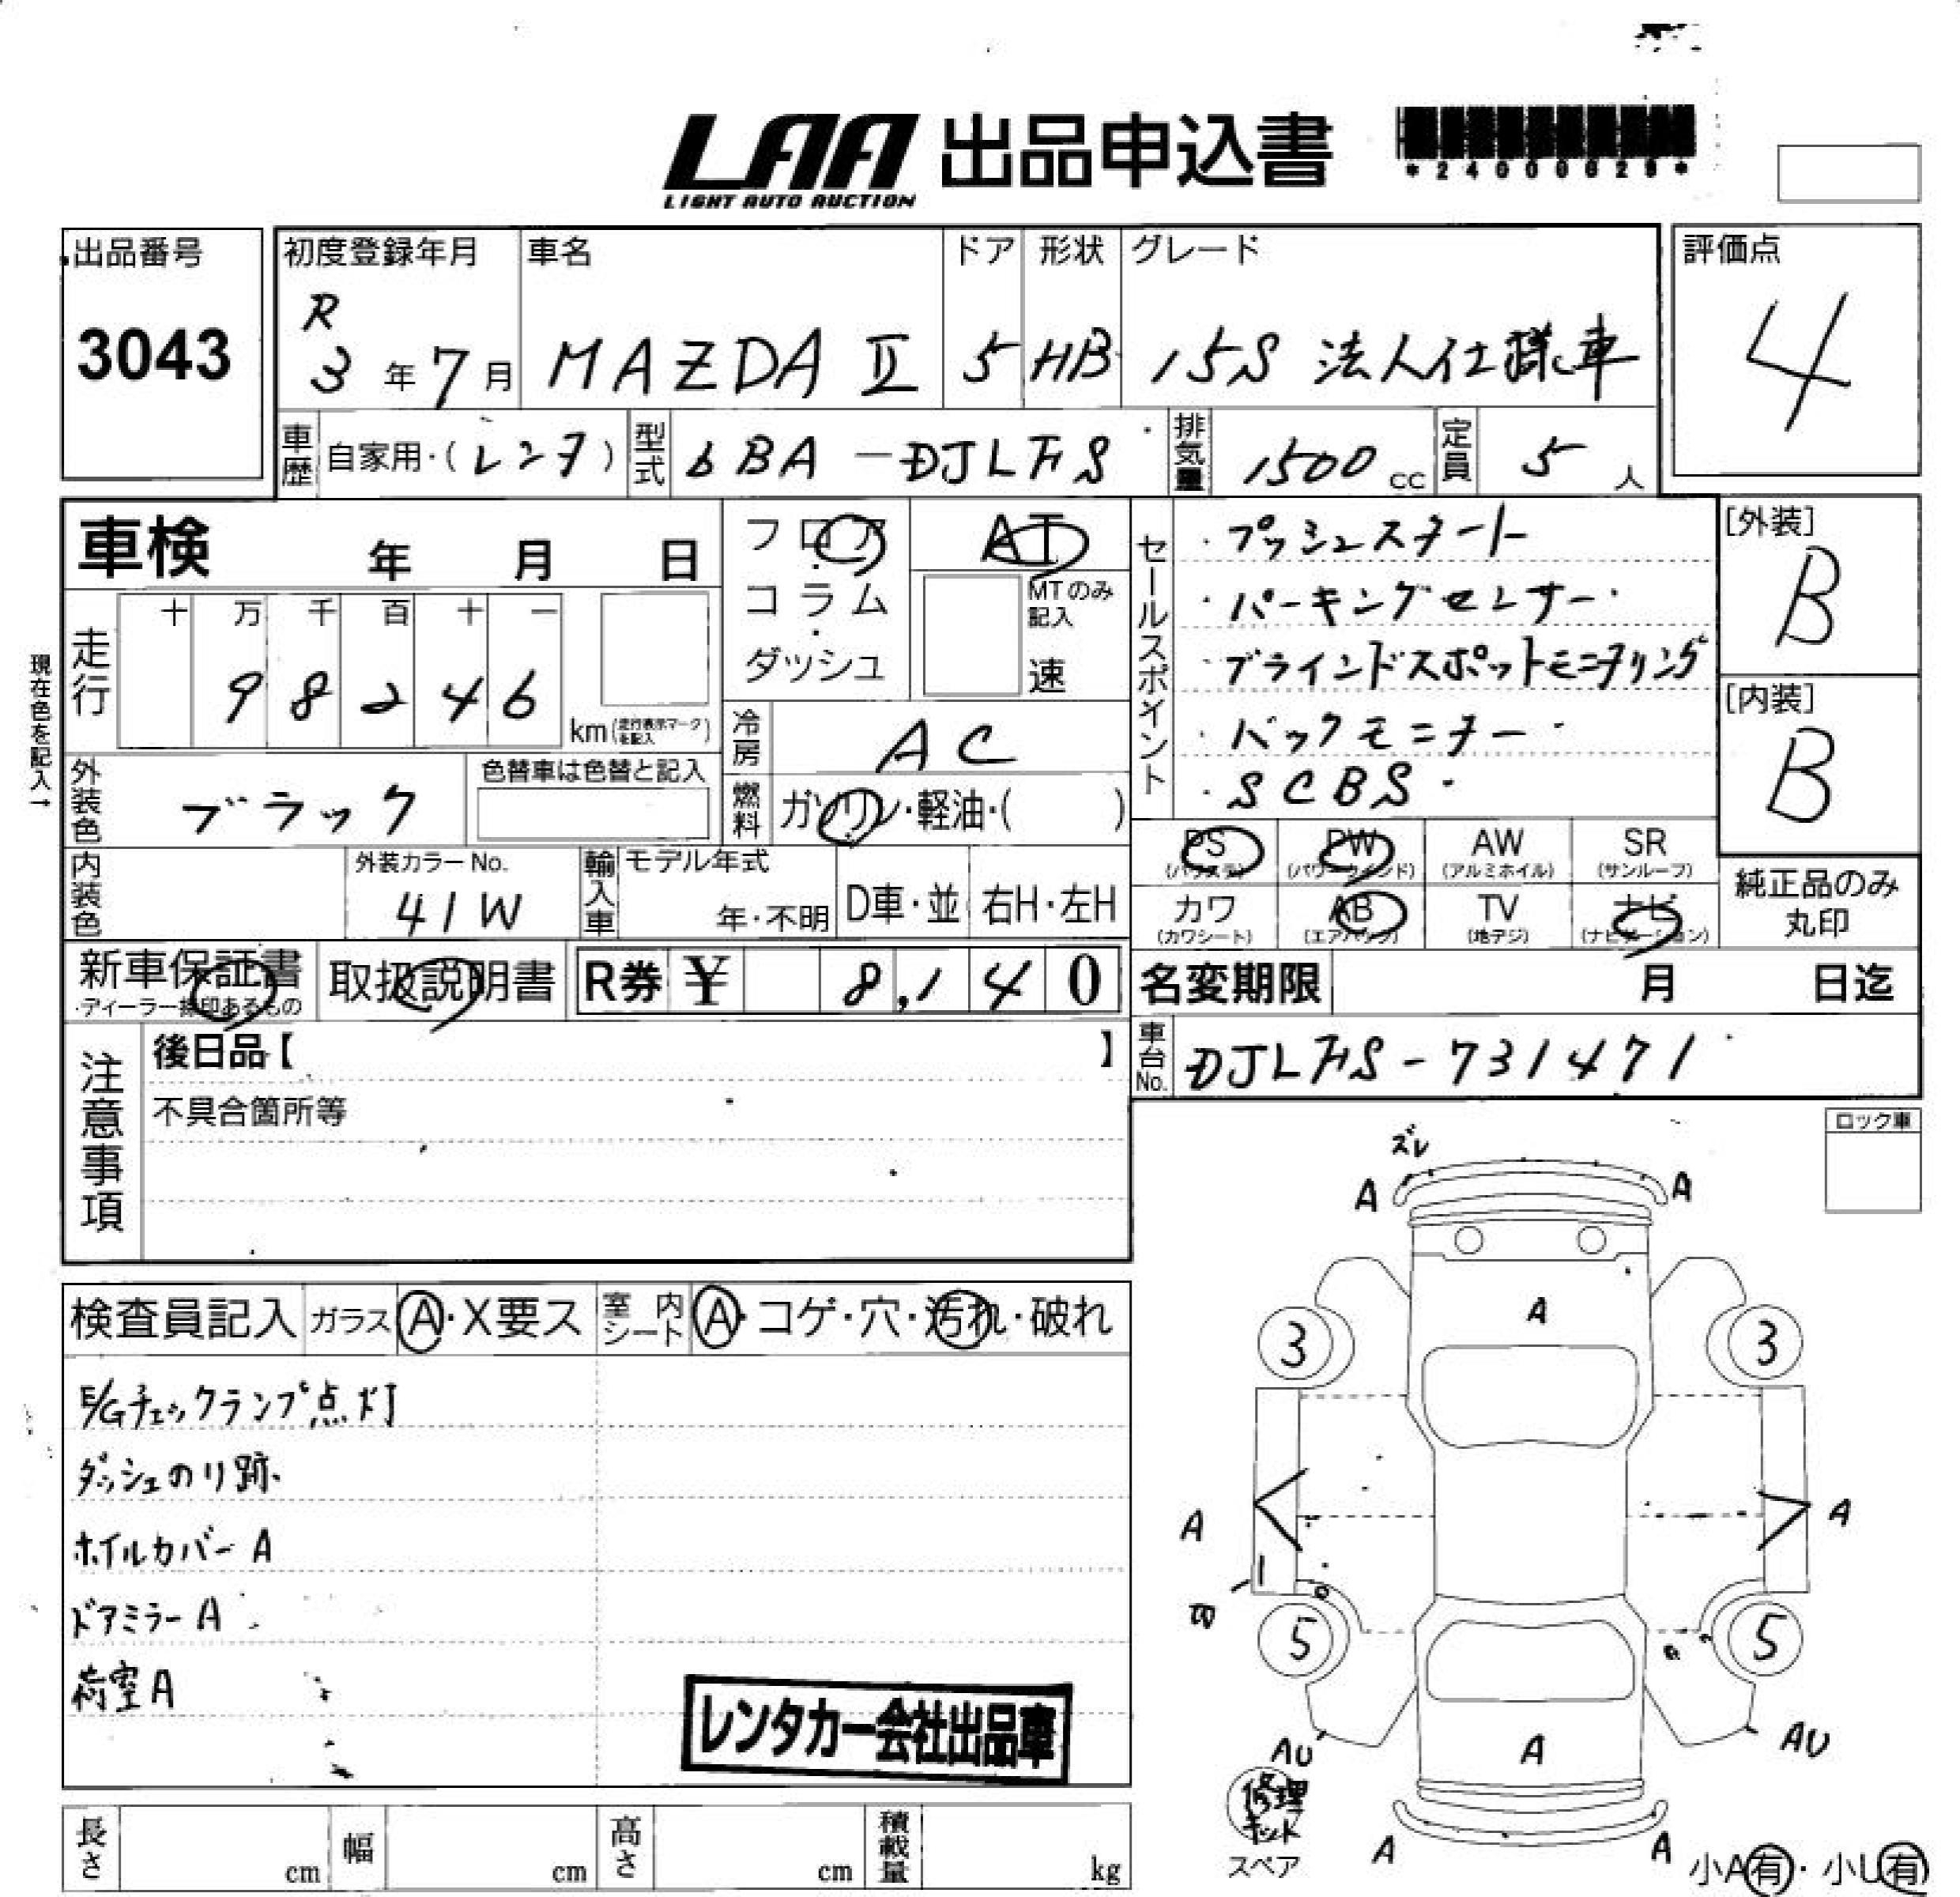 LAA 出品申込書
LIGHT AUTO AUCTION
*24000829*
出品番号
3043
初度登録年月
R
3年7月
車名
MAZDA Ⅱ
ドア
5
形状
HB
グレード
15S 法人仕様車
評価点
4
車歴 自家用・(レンタ)
型式 6BA-DJLFS
排気量 1500 cc
定員 5人
車検 年 月 日
フロア・コラム・ダッシュ
AT
MTのみ記入
速
セールスポイント
・プッシュスタート
・パーキングセンサー・
・ブラインドスポットモニタリング
・バックモニター・
・SCBS・
[外装]
B
[内装]
B
現在色を記入→
走行
十 万 千 百 十 一
9 8 2 4 6
km(走行表示マークを記入)
冷房 AC
外装色 ブラック
色替車は色替と記入
燃料 ガソリン・軽油・( )
内装色
外装カラーNo.
41W
輸入車
モデル年式
年・不明
D車・並
右H・左H
PS (パワステ)
PW (パワーウインド)
AW (アルミホイル)
SR (サンルーフ)
カワ (カワシート)
AB (エアバッグ)
TV (地デジ)
ナビ (ナビゲーション)
純正品のみ
丸印
新車保証書
・ディーラー捺印あるもの
取扱説明書
R券 ¥ 8,140
名変期限 月 日迄
車台No. DJLFS-731471
注意事項
後日品【 】
不具合箇所等
ロック車
検査員記入
ガラス A・X要ス
室内シート A・コゲ・穴・汚れ・破れ
E/Gチェックランプ点灯
ダッシュのり跡
ホイルカバーA
ドアミラーA
荷室A
レンタカー会社出品車
ズレ
A A
A
3 3
A A
5 5
AU AU
A
修理キット
スペア
A A
小A有・小U有
長さ cm
幅 cm
高さ cm
積載量 kg